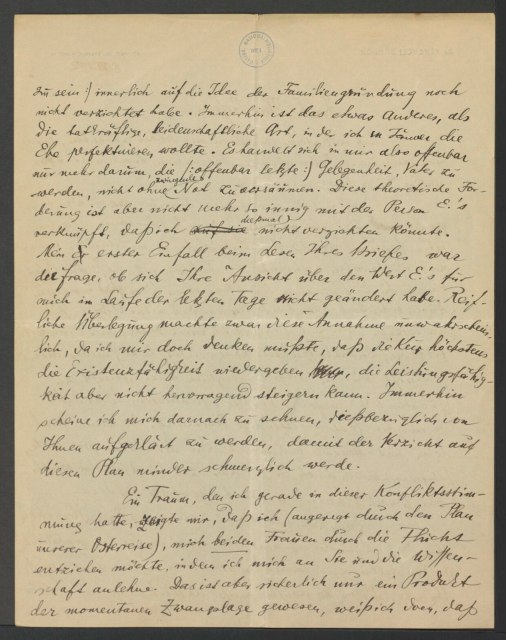 zu sein:) innerlich auf die Idee der Familiengründung noch
nicht verzichtet habe. Immerhin ist das etwas Anderes, als
die tatkräftige, leidenschaftliche Art, in der ich in Januar die
Ehe perfektuieren wollte. Es handelt sich in mir also offenbar
nur mehr darum, die (:offenbar letzte:) Gelegenheit, Vater zu
werden, nicht ohne zwingende Not zu versäumen. Diese theoretische For-
derung ist aber nicht mehr so innig mit der Person E.'s
verknüpft, daß ich auf sie (diesmal) nicht verzichten könnte.
Mein erster Einfall beim Lesen Ihres Briefes war
die Frage, ob sich Ihre Ansicht über den Wert E.'s für
mich im Laufe der letzten Tage nicht geändert habe. Reif-
liche Überlegung machte zwar diese Annahme unwahrschein-
lich, da ich mir doch denken müßte, daß die Kur höchstens
die Existenzfähigkeit wiedergeben, die Leistungsfähig-
keit aber nicht hervorragend steigern kann. Immerhin
scheine ich mich darnach zu sehnen, dießbezüglich von
Ihnen aufgeklärt zu werden, damit der Verzicht auf
diesen Plan minder schmerzlich werde.
Ein Traum, den ich gerade in dieser Konfliktsstim-
mung hatte, zeigte mir, daß ich (angeregt durch den Plan
unserer Osterreise), mich beiden Frauen durch die Flucht
entziehen möchte, indem ich mich an Sie und die Wissen-
schaft anlehne. Das ist aber sicherlich nur ein Produkt
der momentanen Zwangslage gewesen, weiß ich doch, daß